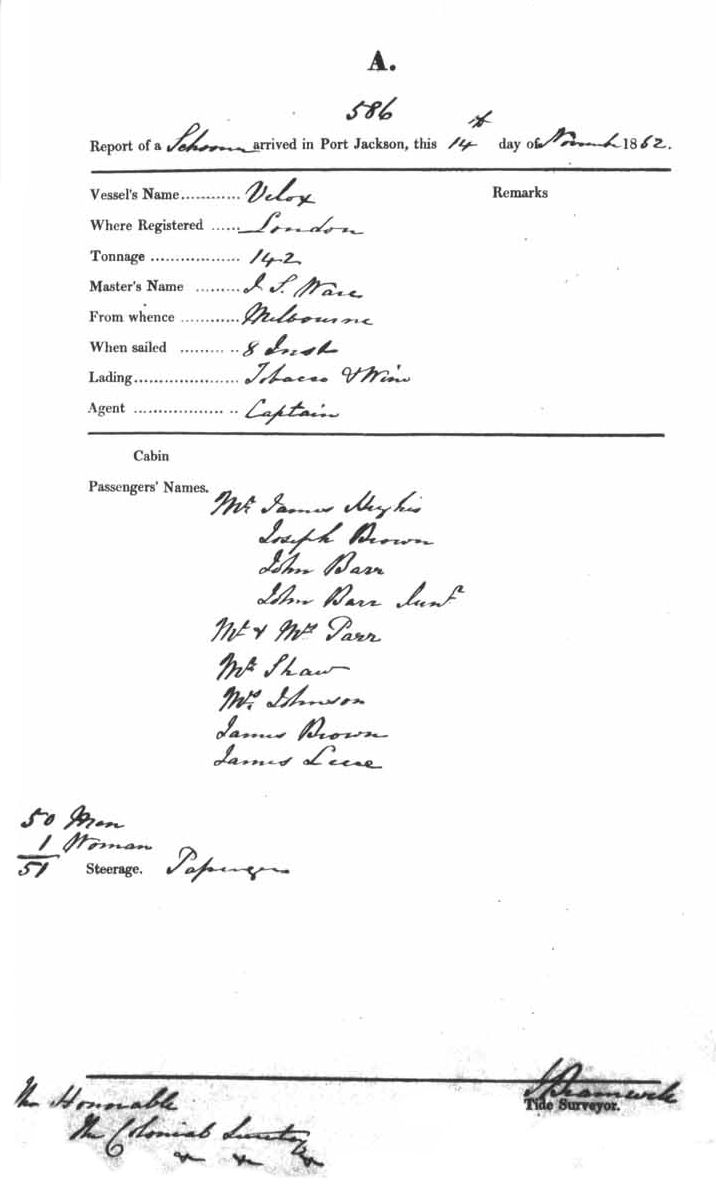 A.
586
Report of a Schooner arrived in Port Jackson, this 14th day of November 1852.
Vessel's Name............ Velox
Remarks
Where Registered ...... London
Tonnage .................. 142
Master's Name ......... J. S. Ware
From whence ............ Melbourne
When sailed ......... .. 8 Inst
Lading..................... Tobacco & Wine
Agent .................. .. Captain
Cabin
Passengers' Names.
Mr. James Hughes
Joseph Brown
John Barr
John Barr Junr
Mr & Mrs Parr
Mr Shaw
Mrs. Johnson
James Brown
James
50 Men
1 Woman
51 Steerage. Passengers
Tide Surveyor.
The Honorable
The Colonial Secretary